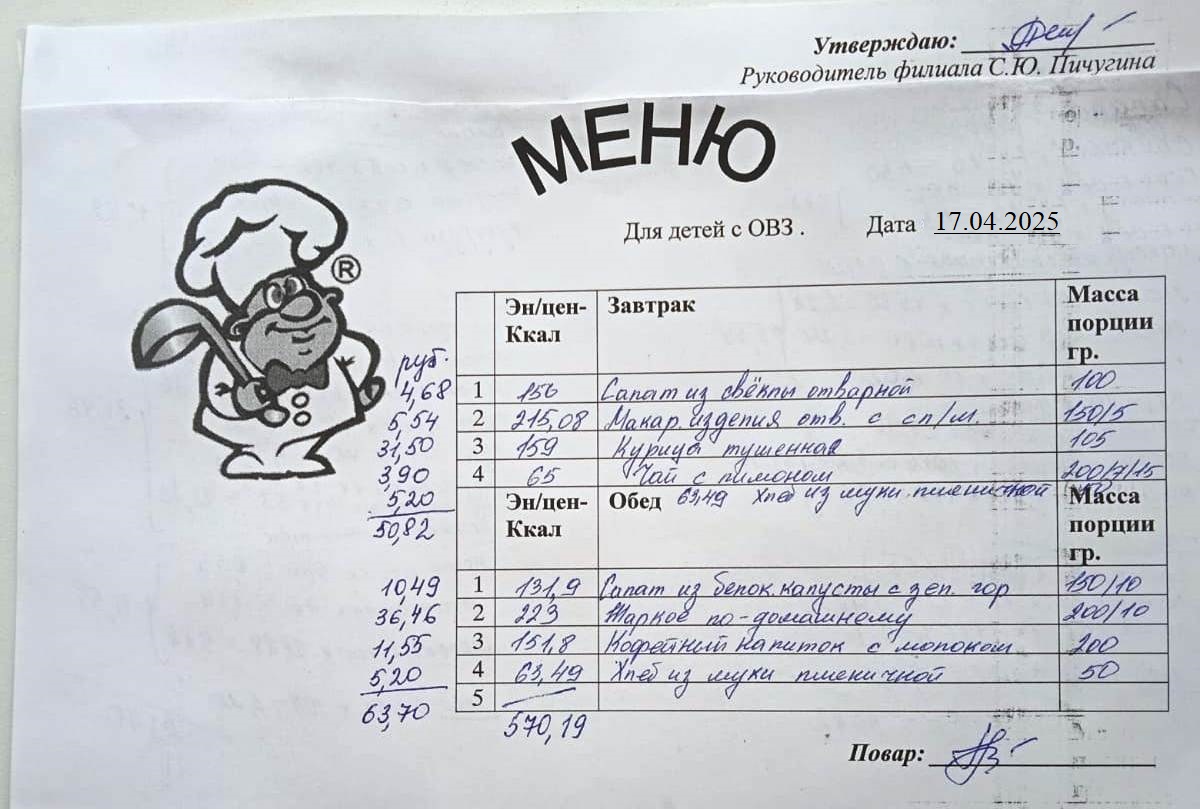 Утверждаю:
Руководитель филиала С.Ю. Пичугина
МЕНЮ
Для детей с ОВЗ . Дата 17.04.2025
®
руб.
Эн/цен-Ккал Завтрак Масса порции гр.
4,68 1 156 Салат из свёклы отварной 100
5,54 2 215,08 Макар. изделия отв. с сл/м. 150/5
31,50 3 159 Курица тушенная 105
3,90 4 65 Чай с лимоном 200/7/15
5,20 63,49 Хлеб из муки пшеничной 50
50,82
Эн/цен-Ккал Обед Масса порции гр.
10,49 1 131,9 Салат из белок. капусты с зел. гор 150/10
36,46 2 223 Жаркое по-домашному 200/10
11,55 3 151,8 Кофейный напиток с молоком 200
5,20 4 63,49 Хлеб из муки пшеничной 50
63,70 5
570,19
Повар: